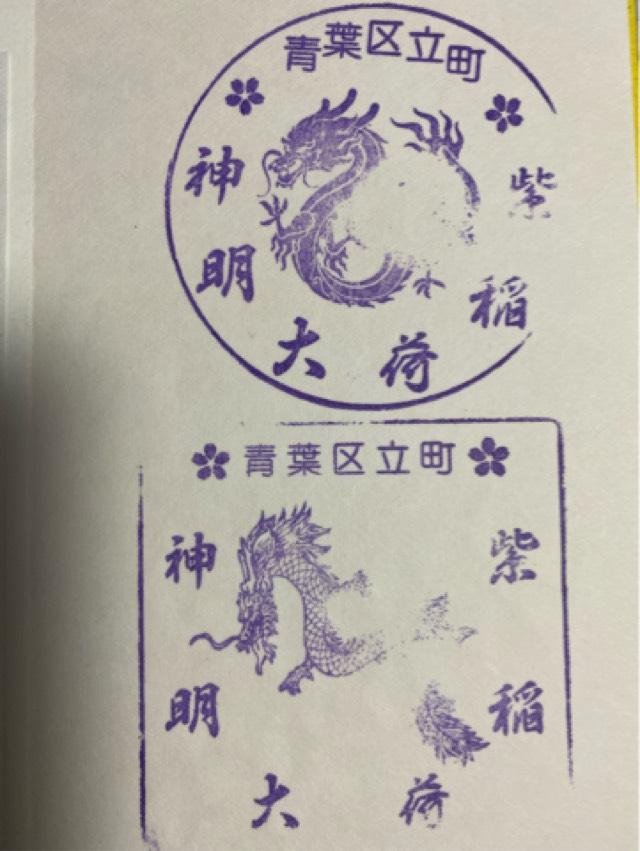 青葉区立町
紫稲荷大明神
青葉区立町
紫稲荷大明神